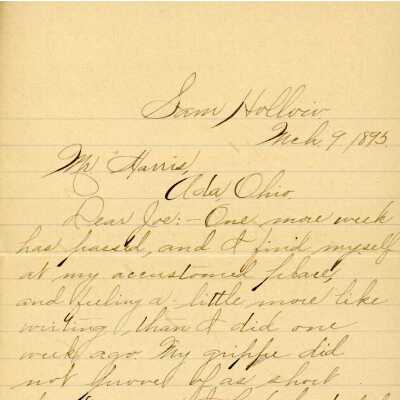 Sam Hollow
Mch. 9, 1895.
Mr Harris,
Ada, Ohio.
Dear Joe:- One more week
has passed, and I find myself
at my accustomed place,
and feeling a little more like
writing, than I did one
week ago. My grippe did
not prove of as short